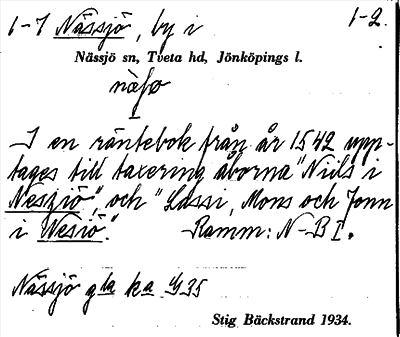 1-7 Nässjö, by i 1-2.
Nässjö sn, Tveta hd, Jönköpings l.
I en räntebok från år 1542 upp-
tages till taxering åborna "Niils i
Neszjö", och "Lassi, Mons och Jonn
i Wesiö". Ramm: N-B I.
Nässjö gla ka 35
Stig Bäckstrand 1934.